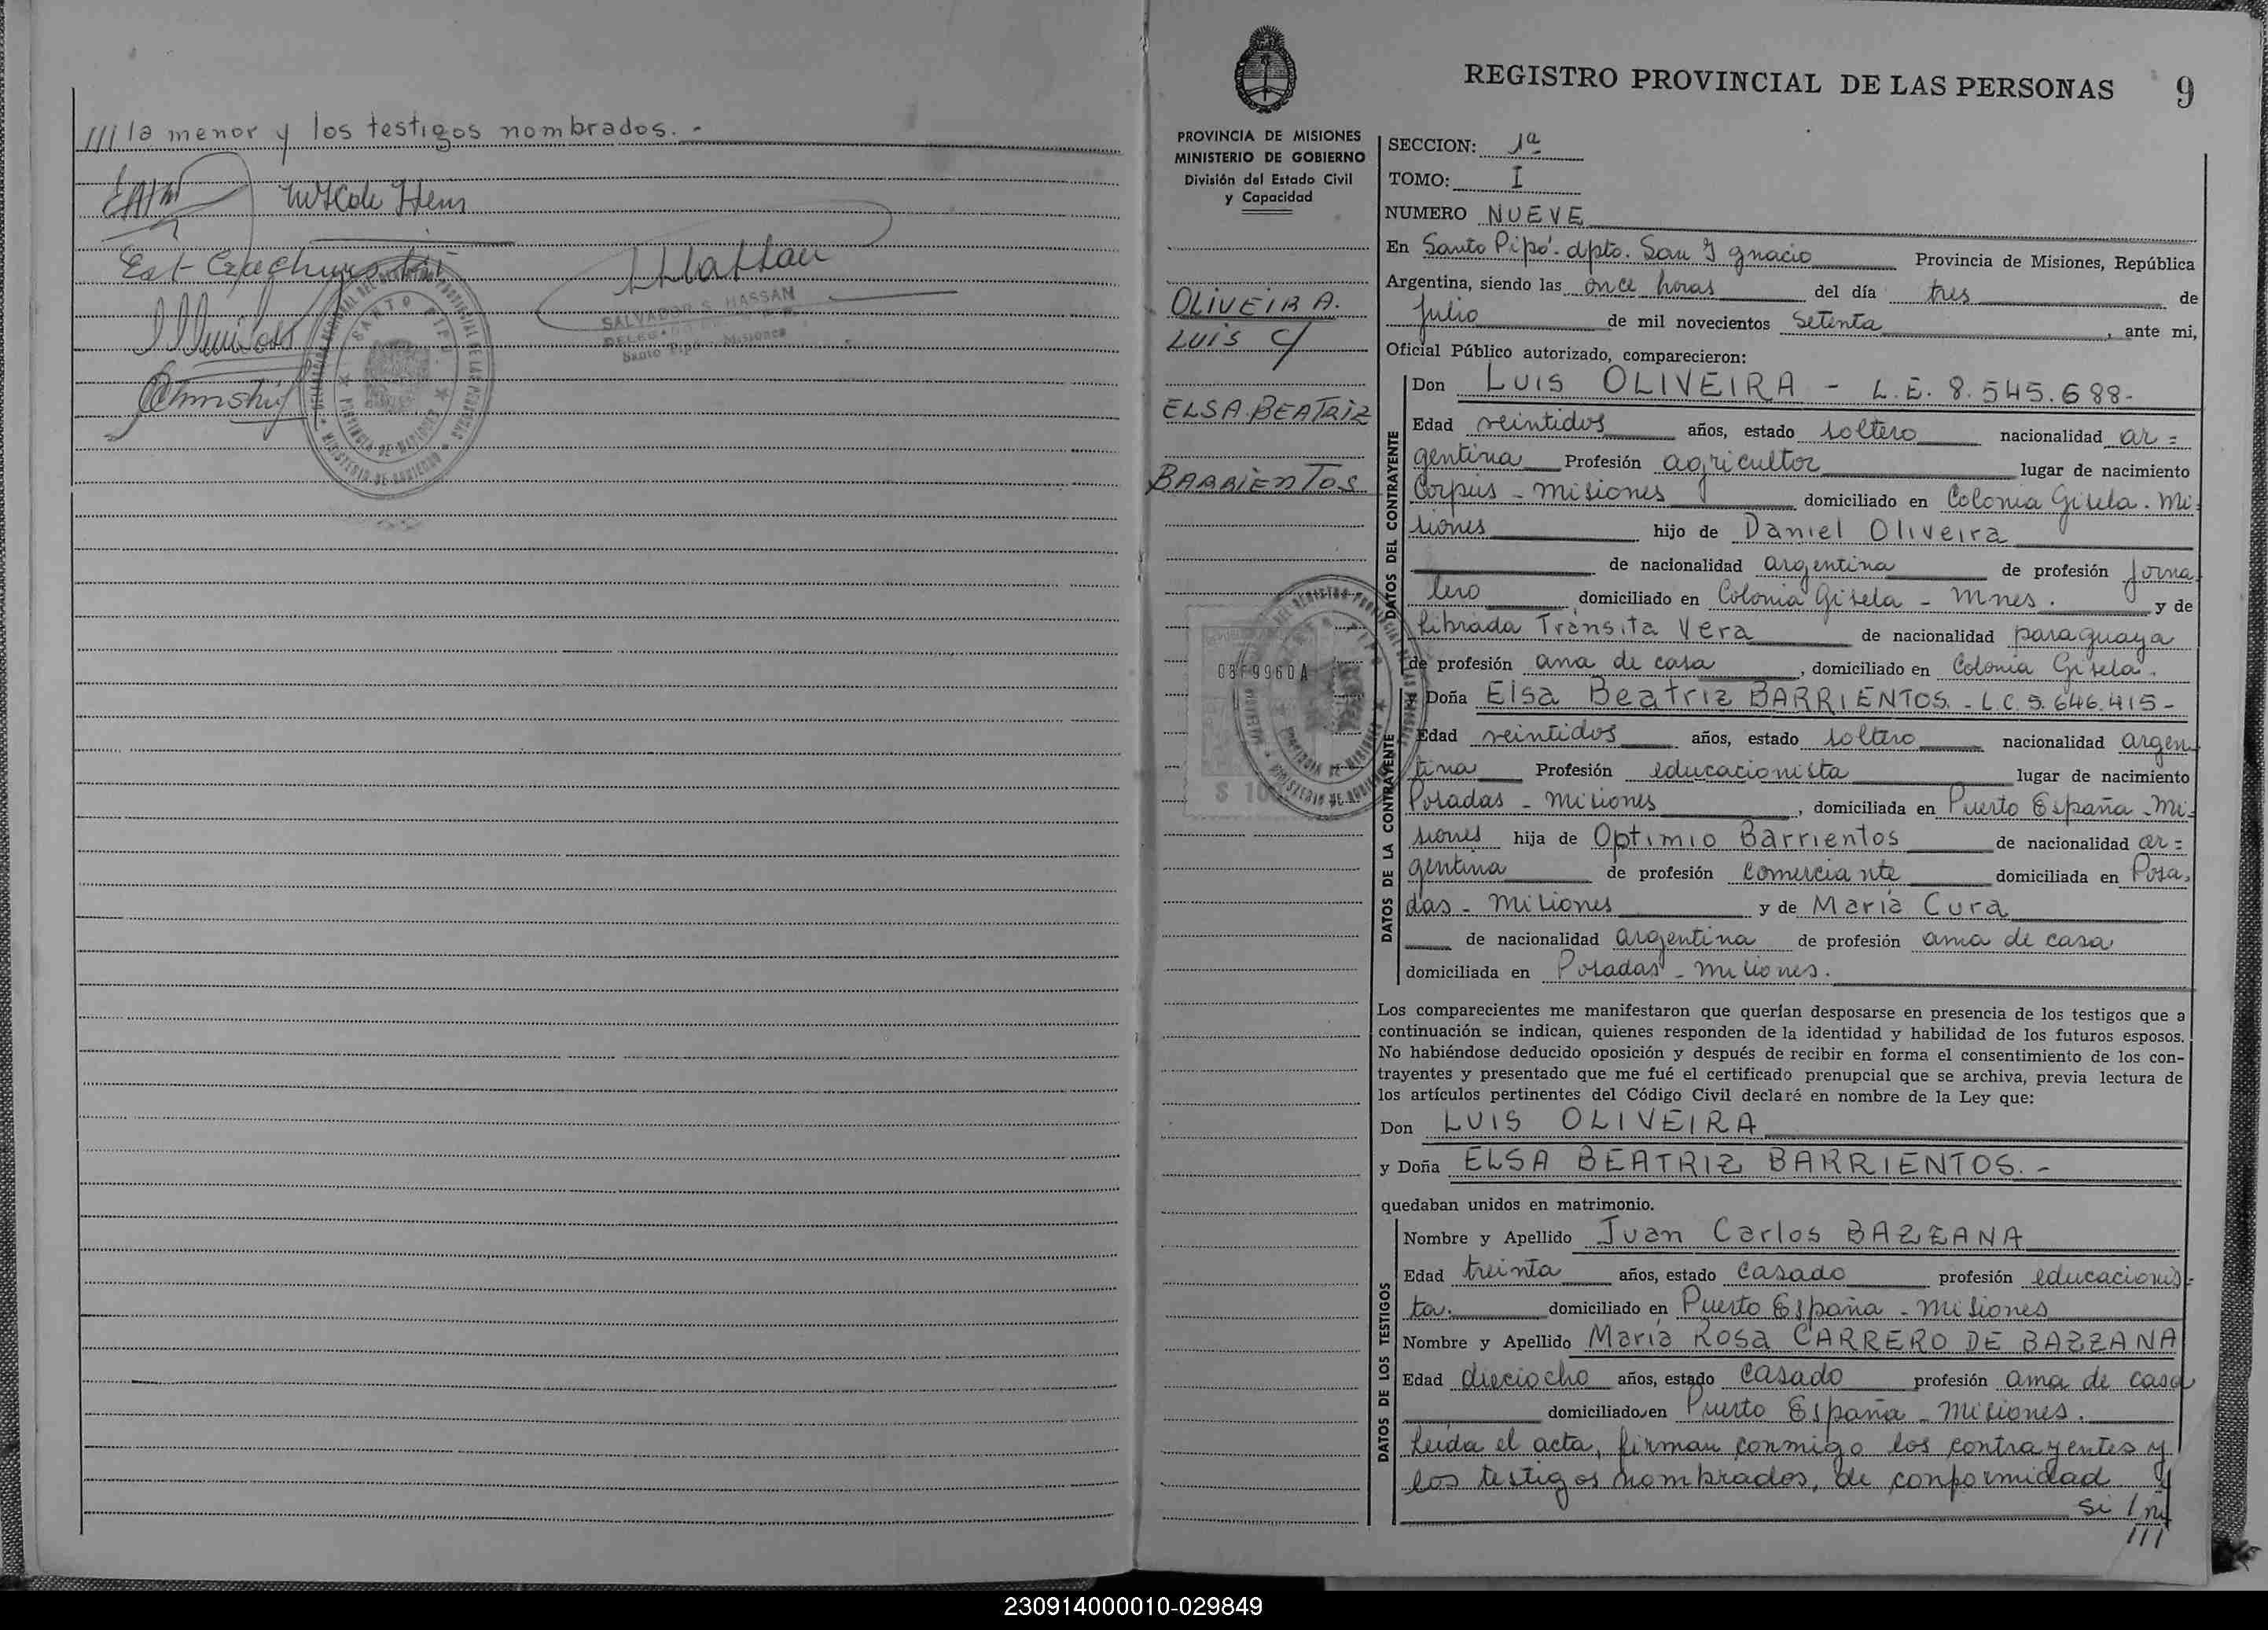 /// la menor y los testigos nombrados. -
SALVADOR S. HASSAN
Santo Pipó - Misiones
REGISTRO PROVINCIAL DE LAS PERSONAS 9
PROVINCIA DE MISIONES
MINISTERIO DE GOBIERNO
División del Estado Civil
y Capacidad
OLIVEIRA.
LUIS C/
ELSA BEATRIZ
BARRIENTOS
08F9960A
SECCION: 1ª
TOMO: I
NUMERO NUEVE
En Santo Pipó. dpto. San Ignacio Provincia de Misiones, República
Argentina, siendo las once horas del día tres de
Julio de mil novecientos setenta, ante mi,
Oficial Público autorizado, comparecieron:
DATOS DEL CONTRAYENTE
Don LUIS OLIVEIRA - L.E. 8.545.688-
Edad veintidos años, estado soltero nacionalidad ar=
gentina Profesión agricultor lugar de nacimiento
Corpus - Misiones domiciliado en Colonia Gisela. Mi-
siones hijo de Daniel Oliveira
de nacionalidad argentina de profesión jorna
lero domiciliado en Colonia Gisela - Mnes. y de
Librada Tránsita Vera de nacionalidad paraguaya
de profesión ama de casa, domiciliado en Colonia Gisela.
DATOS DE LA CONTRAYENTE
Doña Elsa Beatriz BARRIENTOS. - L.C. 5.646.415-
Edad veintidos años, estado soltero nacionalidad argen
tina Profesión educacionista lugar de nacimiento
Posadas - Misiones, domiciliada en Puerto España - Mi-
siones hija de Optimio Barrientos de nacionalidad ar=
gentina de profesión Comerciante domiciliada en Posa-
das - Misiones y de María Cura
de nacionalidad argentina de profesión ama de casa
domiciliada en Posadas - Misiones.
Los comparecientes me manifestaron que querían desposarse en presencia de los testigos que a
continuación se indican, quienes responden de la identidad y habilidad de los futuros esposos.
No habiéndose deducido oposición y después de recibir en forma el consentimiento de los con-
trayentes y presentado que me fué el certificado prenupcial que se archiva, previa lectura de
los artículos pertinentes del Código Civil declaré en nombre de la Ley que:
Don LUIS OLIVEIRA
y Doña ELSA BEATRIZ BARRIENTOS. -
quedaban unidos en matrimonio.
DATOS DE LOS TESTIGOS
Nombre y Apellido Juan Carlos BAZZANA
Edad treinta años, estado casado profesión educacionis-
ta. domiciliado en Puerto España - Misiones
Nombre y Apellido María Rosa CARRERO DE BAZZANA
Edad dieciocho años, estado casado profesión ama de casa
domiciliado en Puerto España - Misiones.
Leída el acta, firman conmigo los contrayentes y
los testigos nombrados, de conformidad
///
230914000010-029849